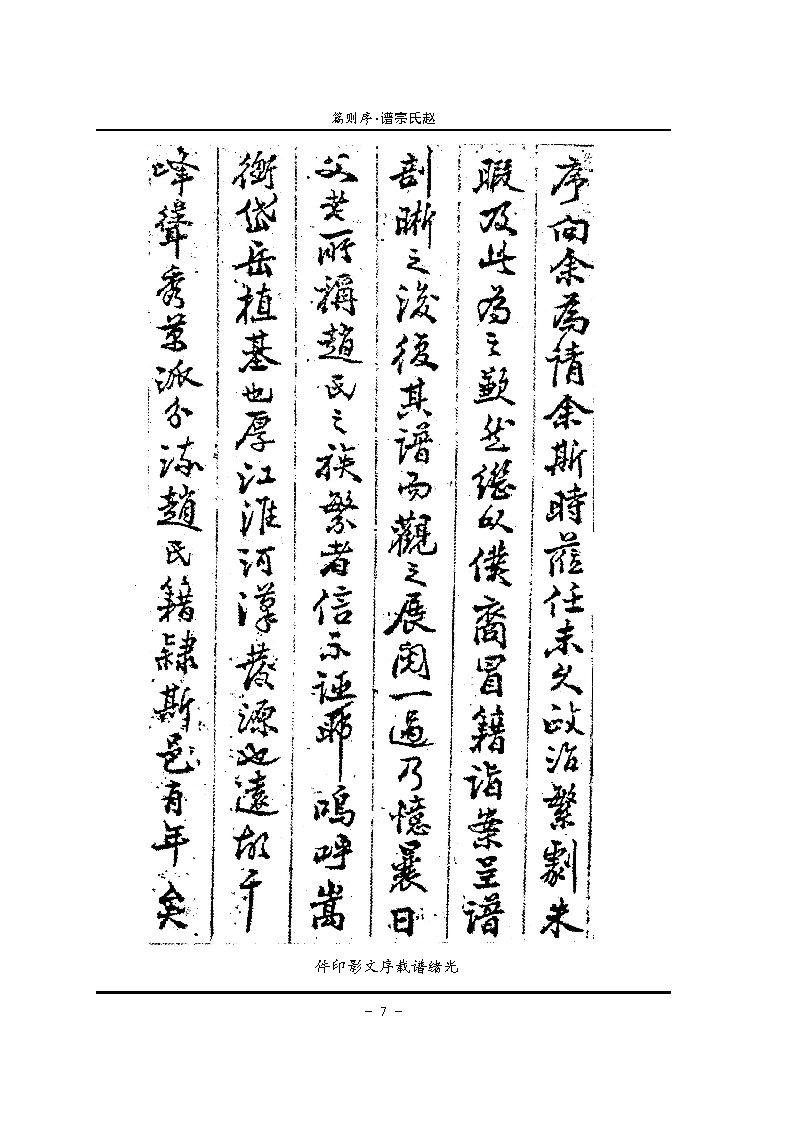 篇则序·谱宗氏赵
序向余為请余斯時蒞任未久政治繁劇未
暇及此為之歉然繼以僕裔冒籍詣案呈谱
剖晰之後復其谱而觀之展閱一過乃憶曩日
父老所稱趙氏之族繁者信不誣耶嗚呼嵩
衡岱岳植基也厚江淮河漢發源也遠故千
峰聳秀萬派分流趙氏籍隸斯邑有年矣
件印影文序载谱绪光
- 7 -